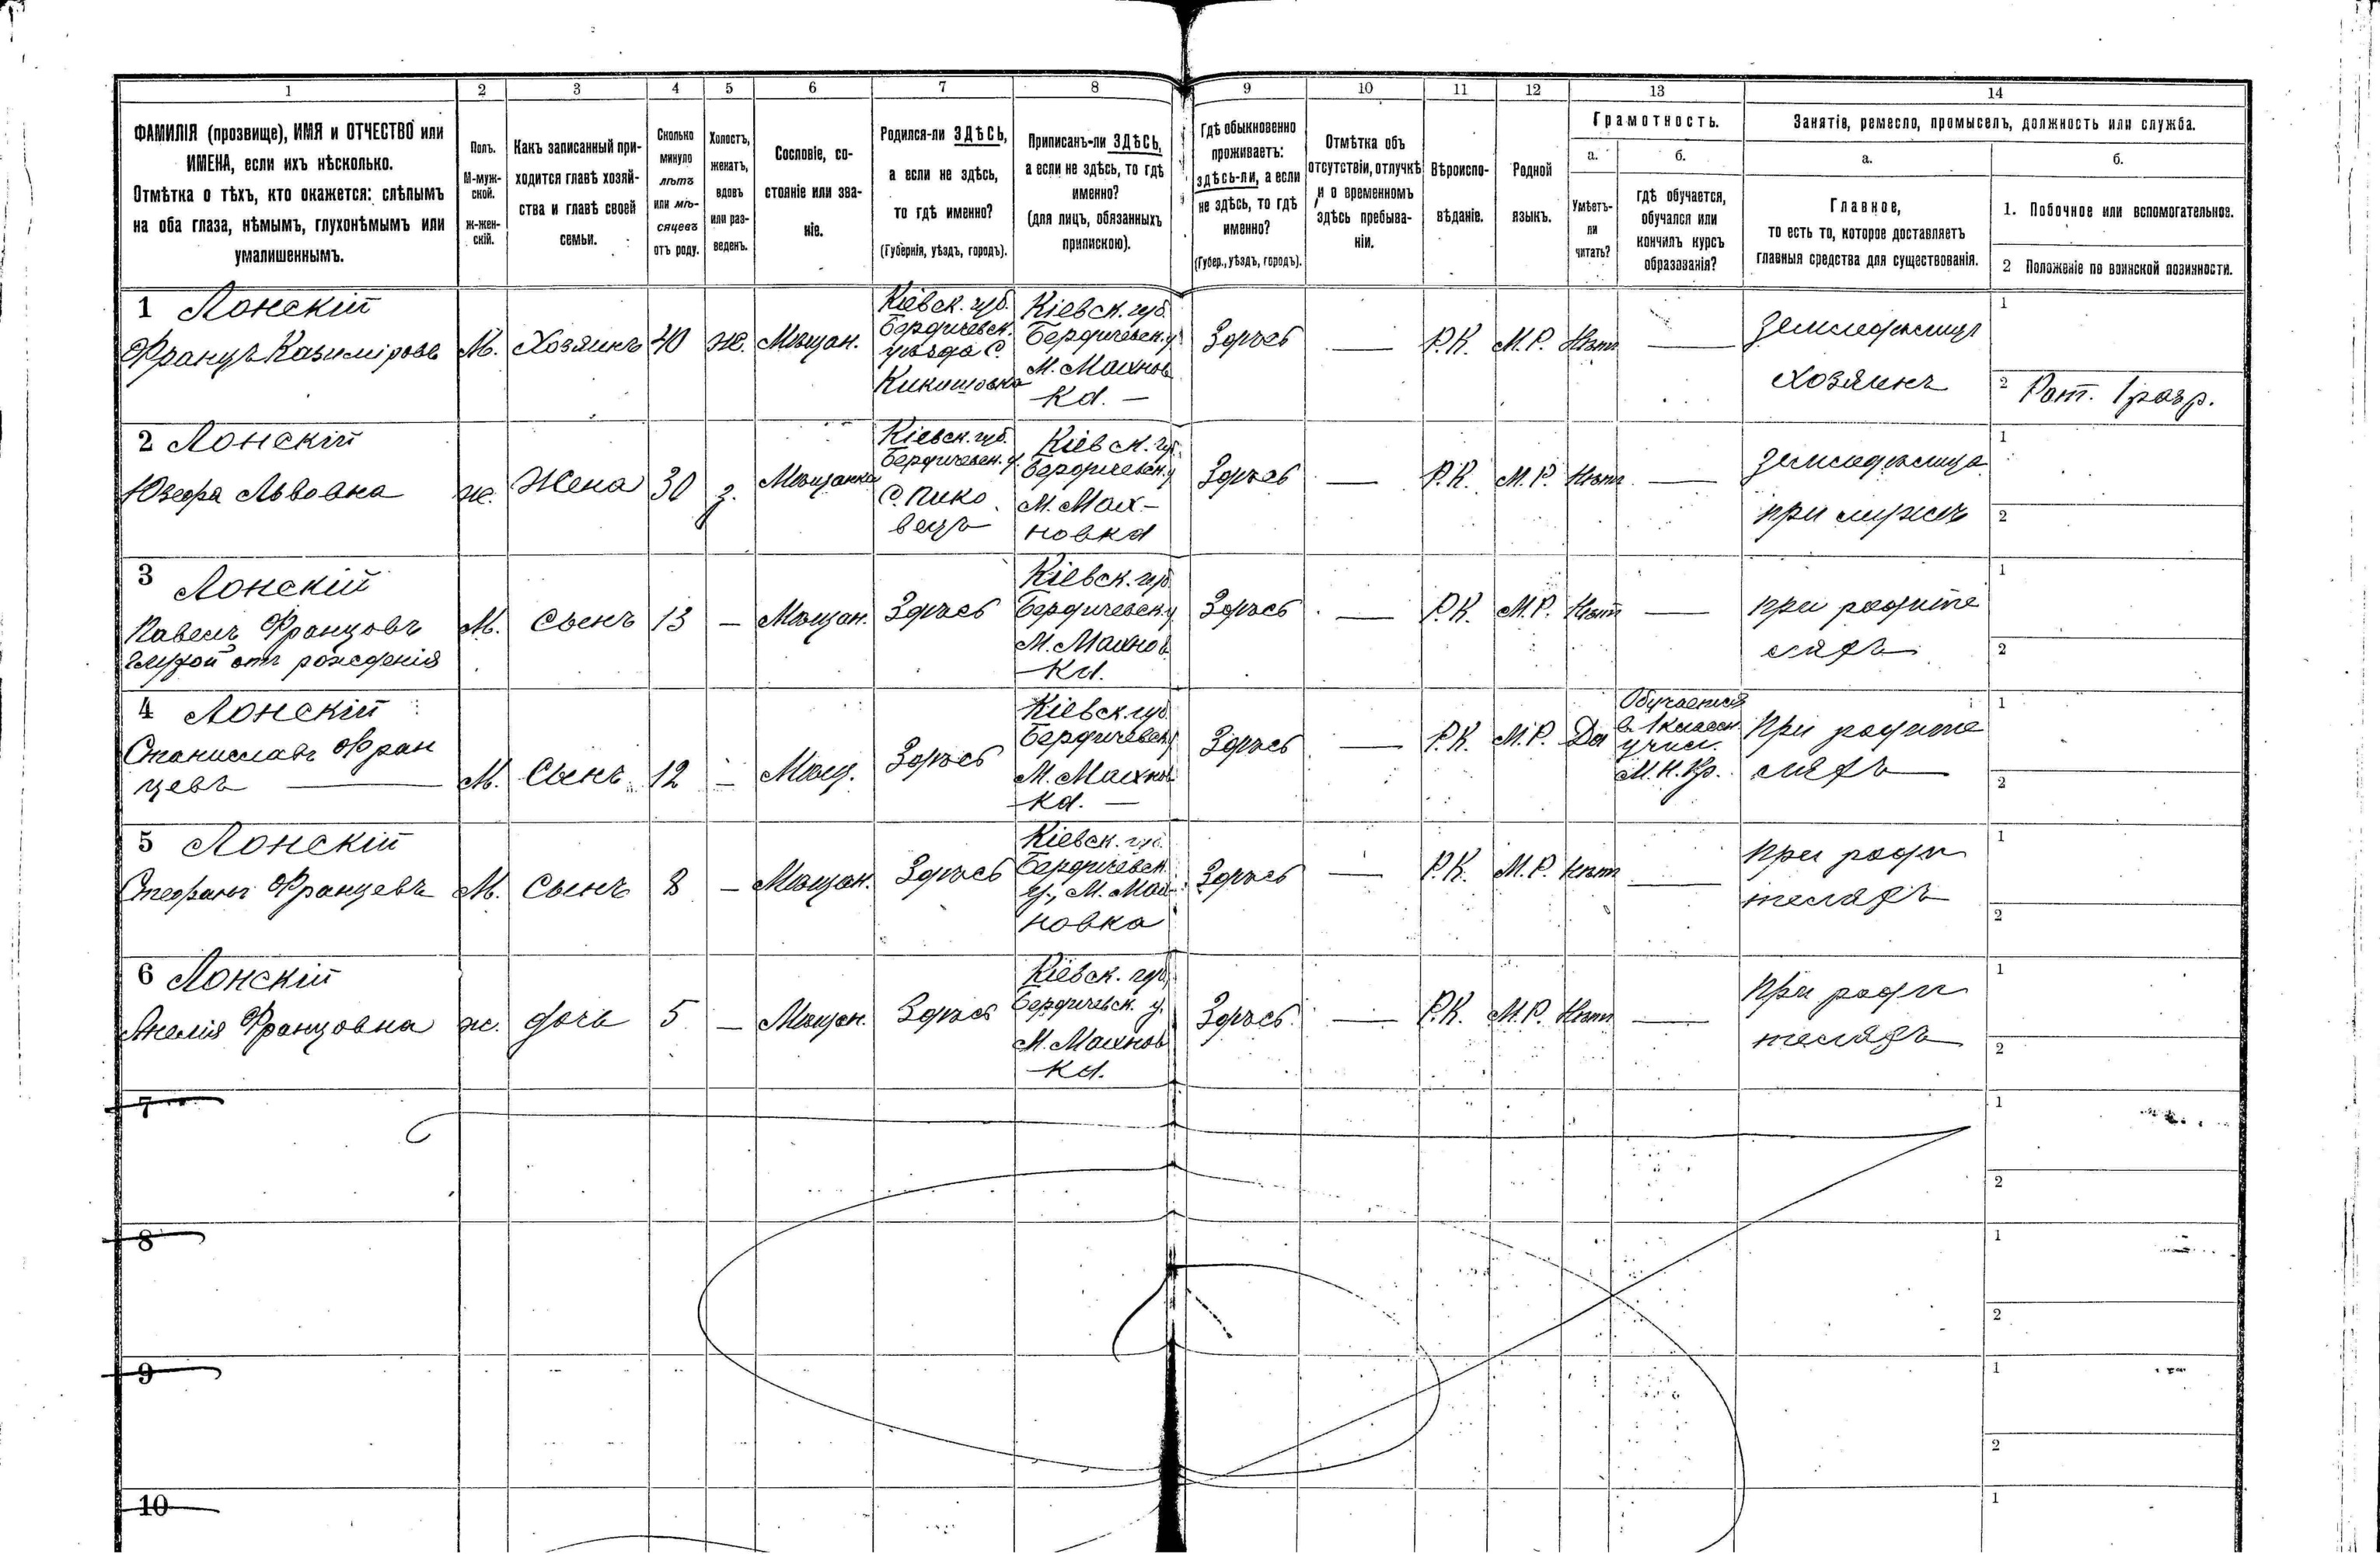 1 2 3 4 5 6 7 8 9 10 11 12 13 14
ФАМИЛІЯ (прозвище), ИМЯ и ОТЧЕСТВО или
ИМЕНА, если ихъ нѣсколько.
Отмѣтка о тѣхъ, кто окажется: слѣпымъ
на оба глаза, нѣмымъ, глухонѣмымъ или
умалишеннымъ.
Полъ.
М-муж-
ской.
ж-жен-
скій.
Какъ записанный при-
ходится главѣ хозяй-
ства и главѣ своей
семьи.
Сколько
минуло
лѣтъ
или мѣ-
сяцевъ
отъ роду.
Холостъ,
женатъ,
вдовъ
или раз-
веденъ.
Сословіе, со-
стояніе или зва-
ніе.
Родился-ли ЗДѢСЬ,
а если не здѣсь,
то гдѣ именно?
(Губернія, уѣздъ, городъ).
Приписанъ-ли ЗДѢСЬ,
а если не здѣсь, то гдѣ
именно?
(для лицъ, обязанныхъ
припискою).
Гдѣ обыкновенно
проживаетъ:
здѣсь-ли, а если
не здѣсь, то гдѣ
именно?
(Губер., уѣздъ, городъ).
Отмѣтка объ
отсутствіи, отлучкѣ
и о временномъ
здѣсь пребыва-
ніи.
Вѣроиспо-
вѣданіе.
Родной
языкъ.
Грамотность.
а.
Умѣетъ-
ли
читать?
б.
гдѣ обучается,
обучался или
кончилъ курсъ
образованія?
Занятіе, ремесло, промыселъ, должность или служба.
а.
Главное,
то есть то, которое доставляетъ
главныя средства для существованія.
б.
1. Побочное или вспомогательное.
2 Положеніе по воинской повинности.
1 Лонскій
Францъ Казиміровъ
М.
Хозяинъ
40
же.
Мѣщан.
Кіевск. губ.
Бердичевск.
уѣзда С.
Кикишовка
Кіевск. губ.
Бердичевск. у
М. Махнов
ка. —
Здѣсь
—
Р.К.
М.Р.
Нѣт
—
Земледѣлецъ
хозяинъ
1
2 Рат. 1 разр.
2 Лонскій
Юзефа Львовна
же.
Жена
30
з.
Мѣщанка
Кіевск. губ.
Бердичевск. у.
С. Пико
вецъ
Кіевск. гу.
Бердичевск. у
М. Мах-
новка
Здѣсь
—
Р.К.
М.Р.
Нѣт
—
Земледѣлица
при мужѣ
1
2
3 Лонскій
Павелъ Францовъ
глухой отъ рожденія
М.
Сынъ
13
—
Мѣщан.
Здѣсь
Кіевск. губ
Бердичевск. у
М. Махнов
ка.
Здѣсь
—
Р.К.
М.Р.
Нѣт
—
при родите
ляхъ
1
2
4 Лонскій
Станиславъ Фран
цевъ —
М.
Сынъ
12
—
Мѣщ.
Здѣсь
Кіевск. губ.
Бердичевск. у
М. Махнов
ка. —
Здѣсь
—
Р.К.
М.Р.
Да
Обучается
в 1 классн.
учил.
М.Н.Пр.
При родите
ляхъ
1
2
5 Лонскій
Стефанъ Францевъ
М.
Сынъ
8
—
Мѣщан.
Здѣсь
Кіевск. губ.
Бердичевск.
у., М. Мах-
новка
Здѣсь
—
Р.К.
М.Р.
Нѣт
—
при роди
теляхъ
1
2
6 Лонскій
Анелія Францовна
же.
дочь
5
—
Мѣщан.
Здѣсь
Кіевск. губ,
Бердичевск. у.
М. Махнов
ка.
Здѣсь.
—
Р.К.
М.Р.
Нѣт
—
При роди
теляхъ
1
2
7
1
2
8
1
2
9
1
2
10
1